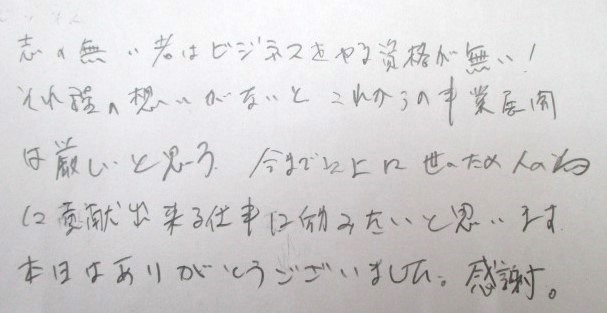 志の無い者はビジネスをやる資格が無い！
それ程の想いがないとこれからの事業展開
は厳しいと思う。今まで以上に世のため人の為
に貢献出来る仕事に励みたいと思います。
本日はありがとうございました。感謝。